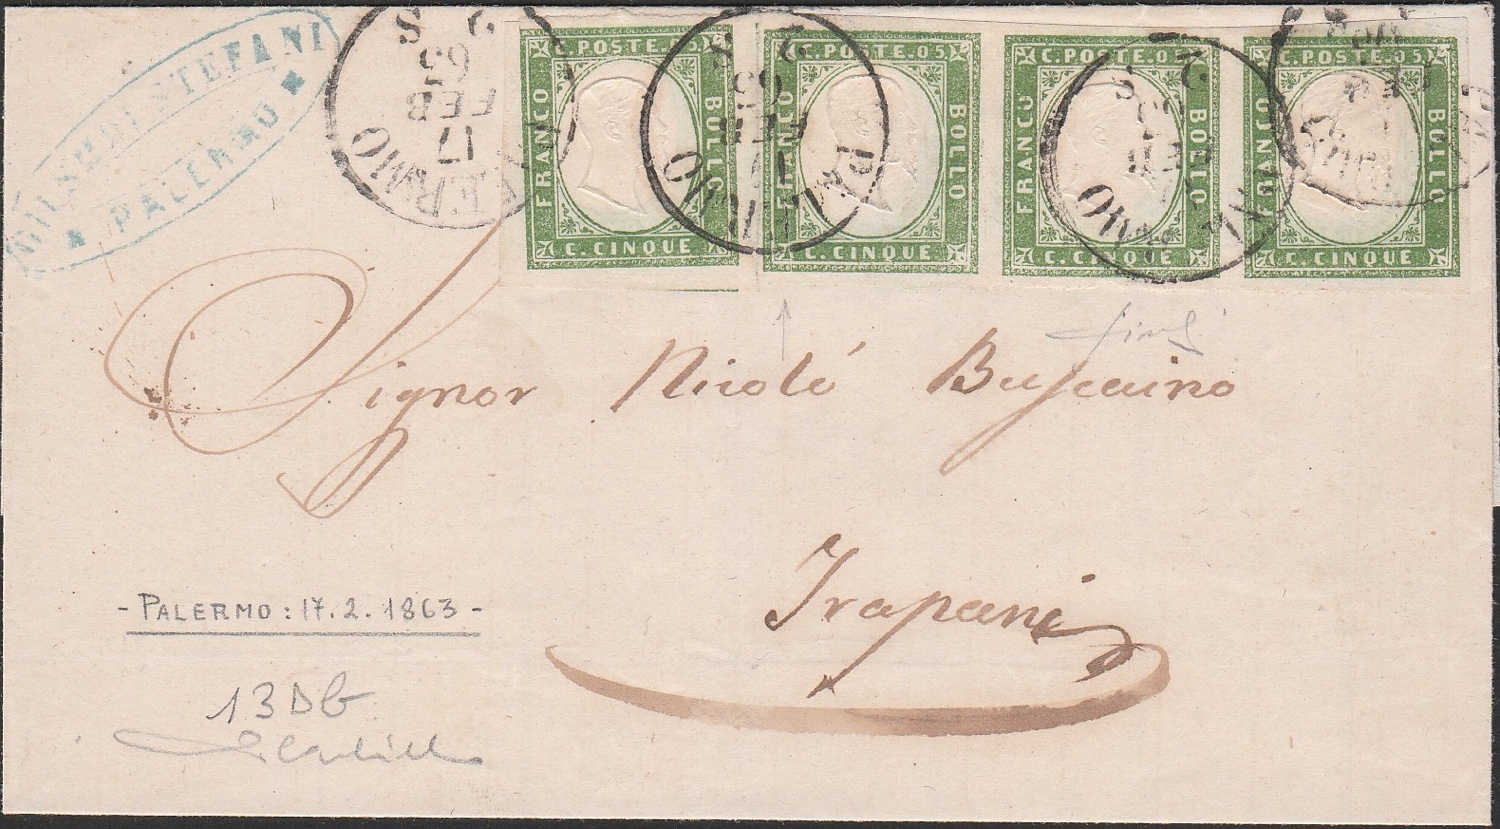 DI STEFANI
PALERMO
PALERMO
17
FEB
63
2 S
C. POSTE. 05
FRANCO
BOLLO
C. CINQUE
PALERMO
FEB
63
2 S
C. POSTE. 05
FRANCO
BOLLO
C. CINQUE
2 S
C. POSTE. 05
FRANCO
BOLLO
C. CINQUE
C. POSTE. 05
FRANCO
BOLLO
C. CINQUE
Signor Nicolò Buscaino
Trapani
- PALERMO: 17.2.1863 -
13Db